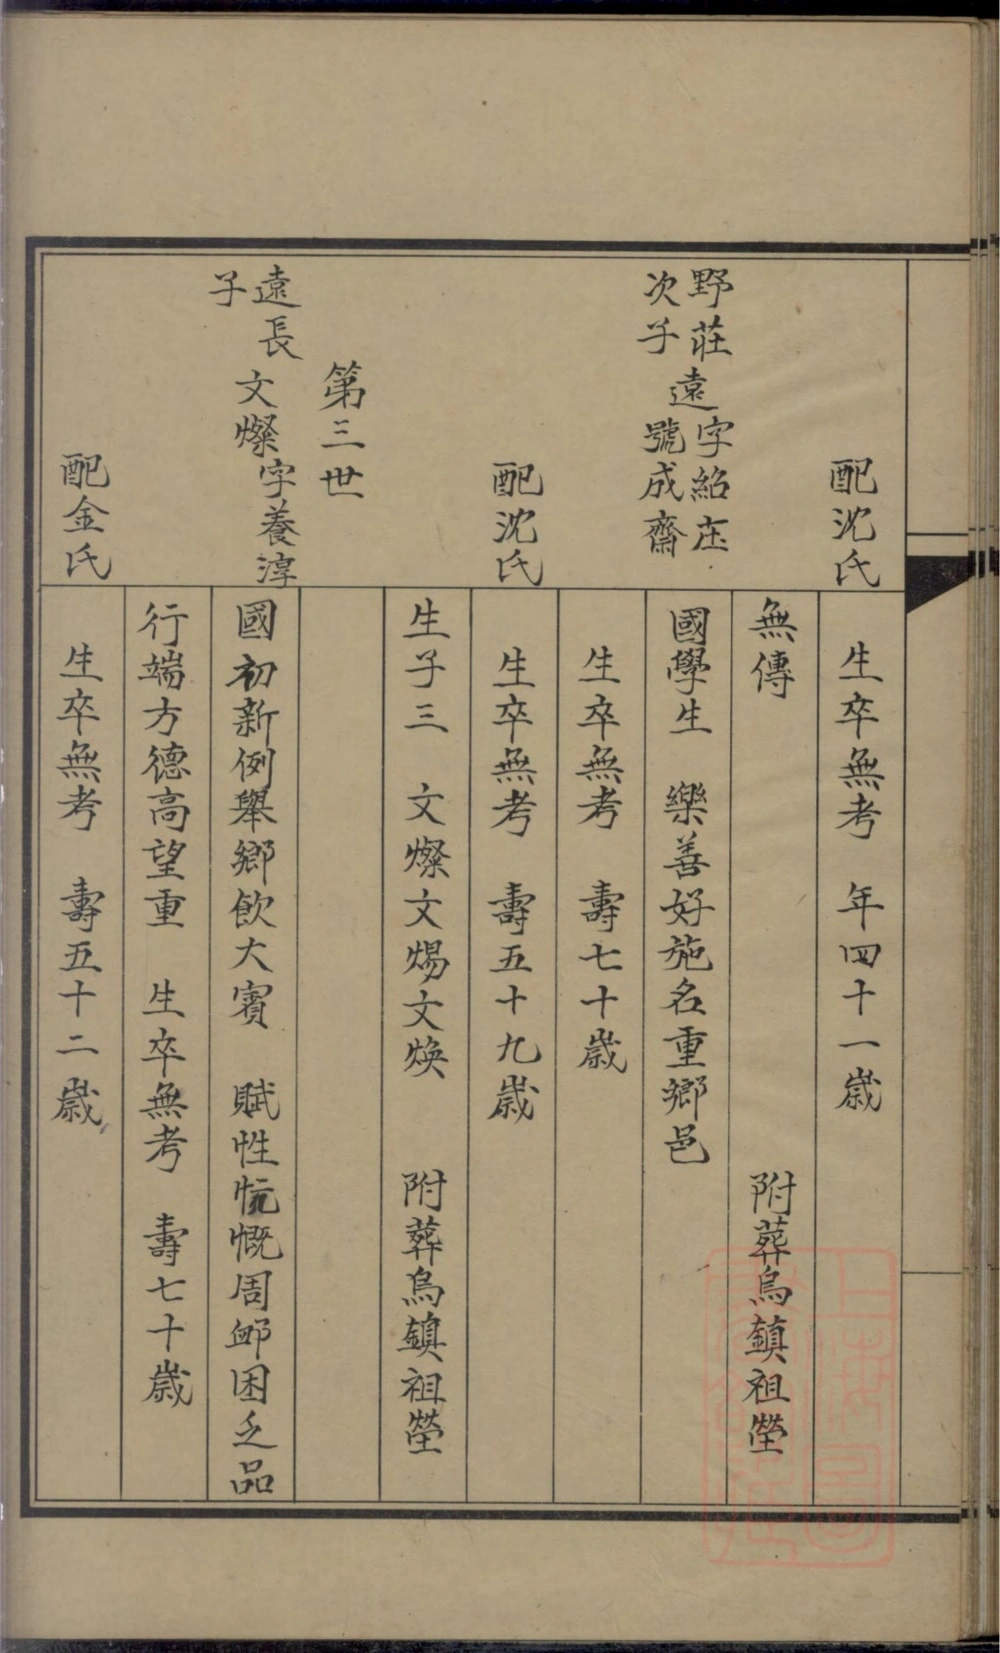 配沈氏
生卒無考　年四十一歲
無傳　附葬烏鎮祖塋
野莊
次子
遠
字紹庄
號成齋
國學生　樂善好施名重鄉邑
生卒無考　壽七十歲
配沈氏
生卒無考　壽五十九歲
生子三　文燦文煬文煥　附葬烏鎮祖塋
第三世
遠長
子
文燦
字養淳
國初新例舉鄉飲大賓　賦性忼慨周邮困乏品
行端方德高望重　生卒無考　壽七十歲
配金氏
生卒無考　壽五十二歲
上海圖
書館藏